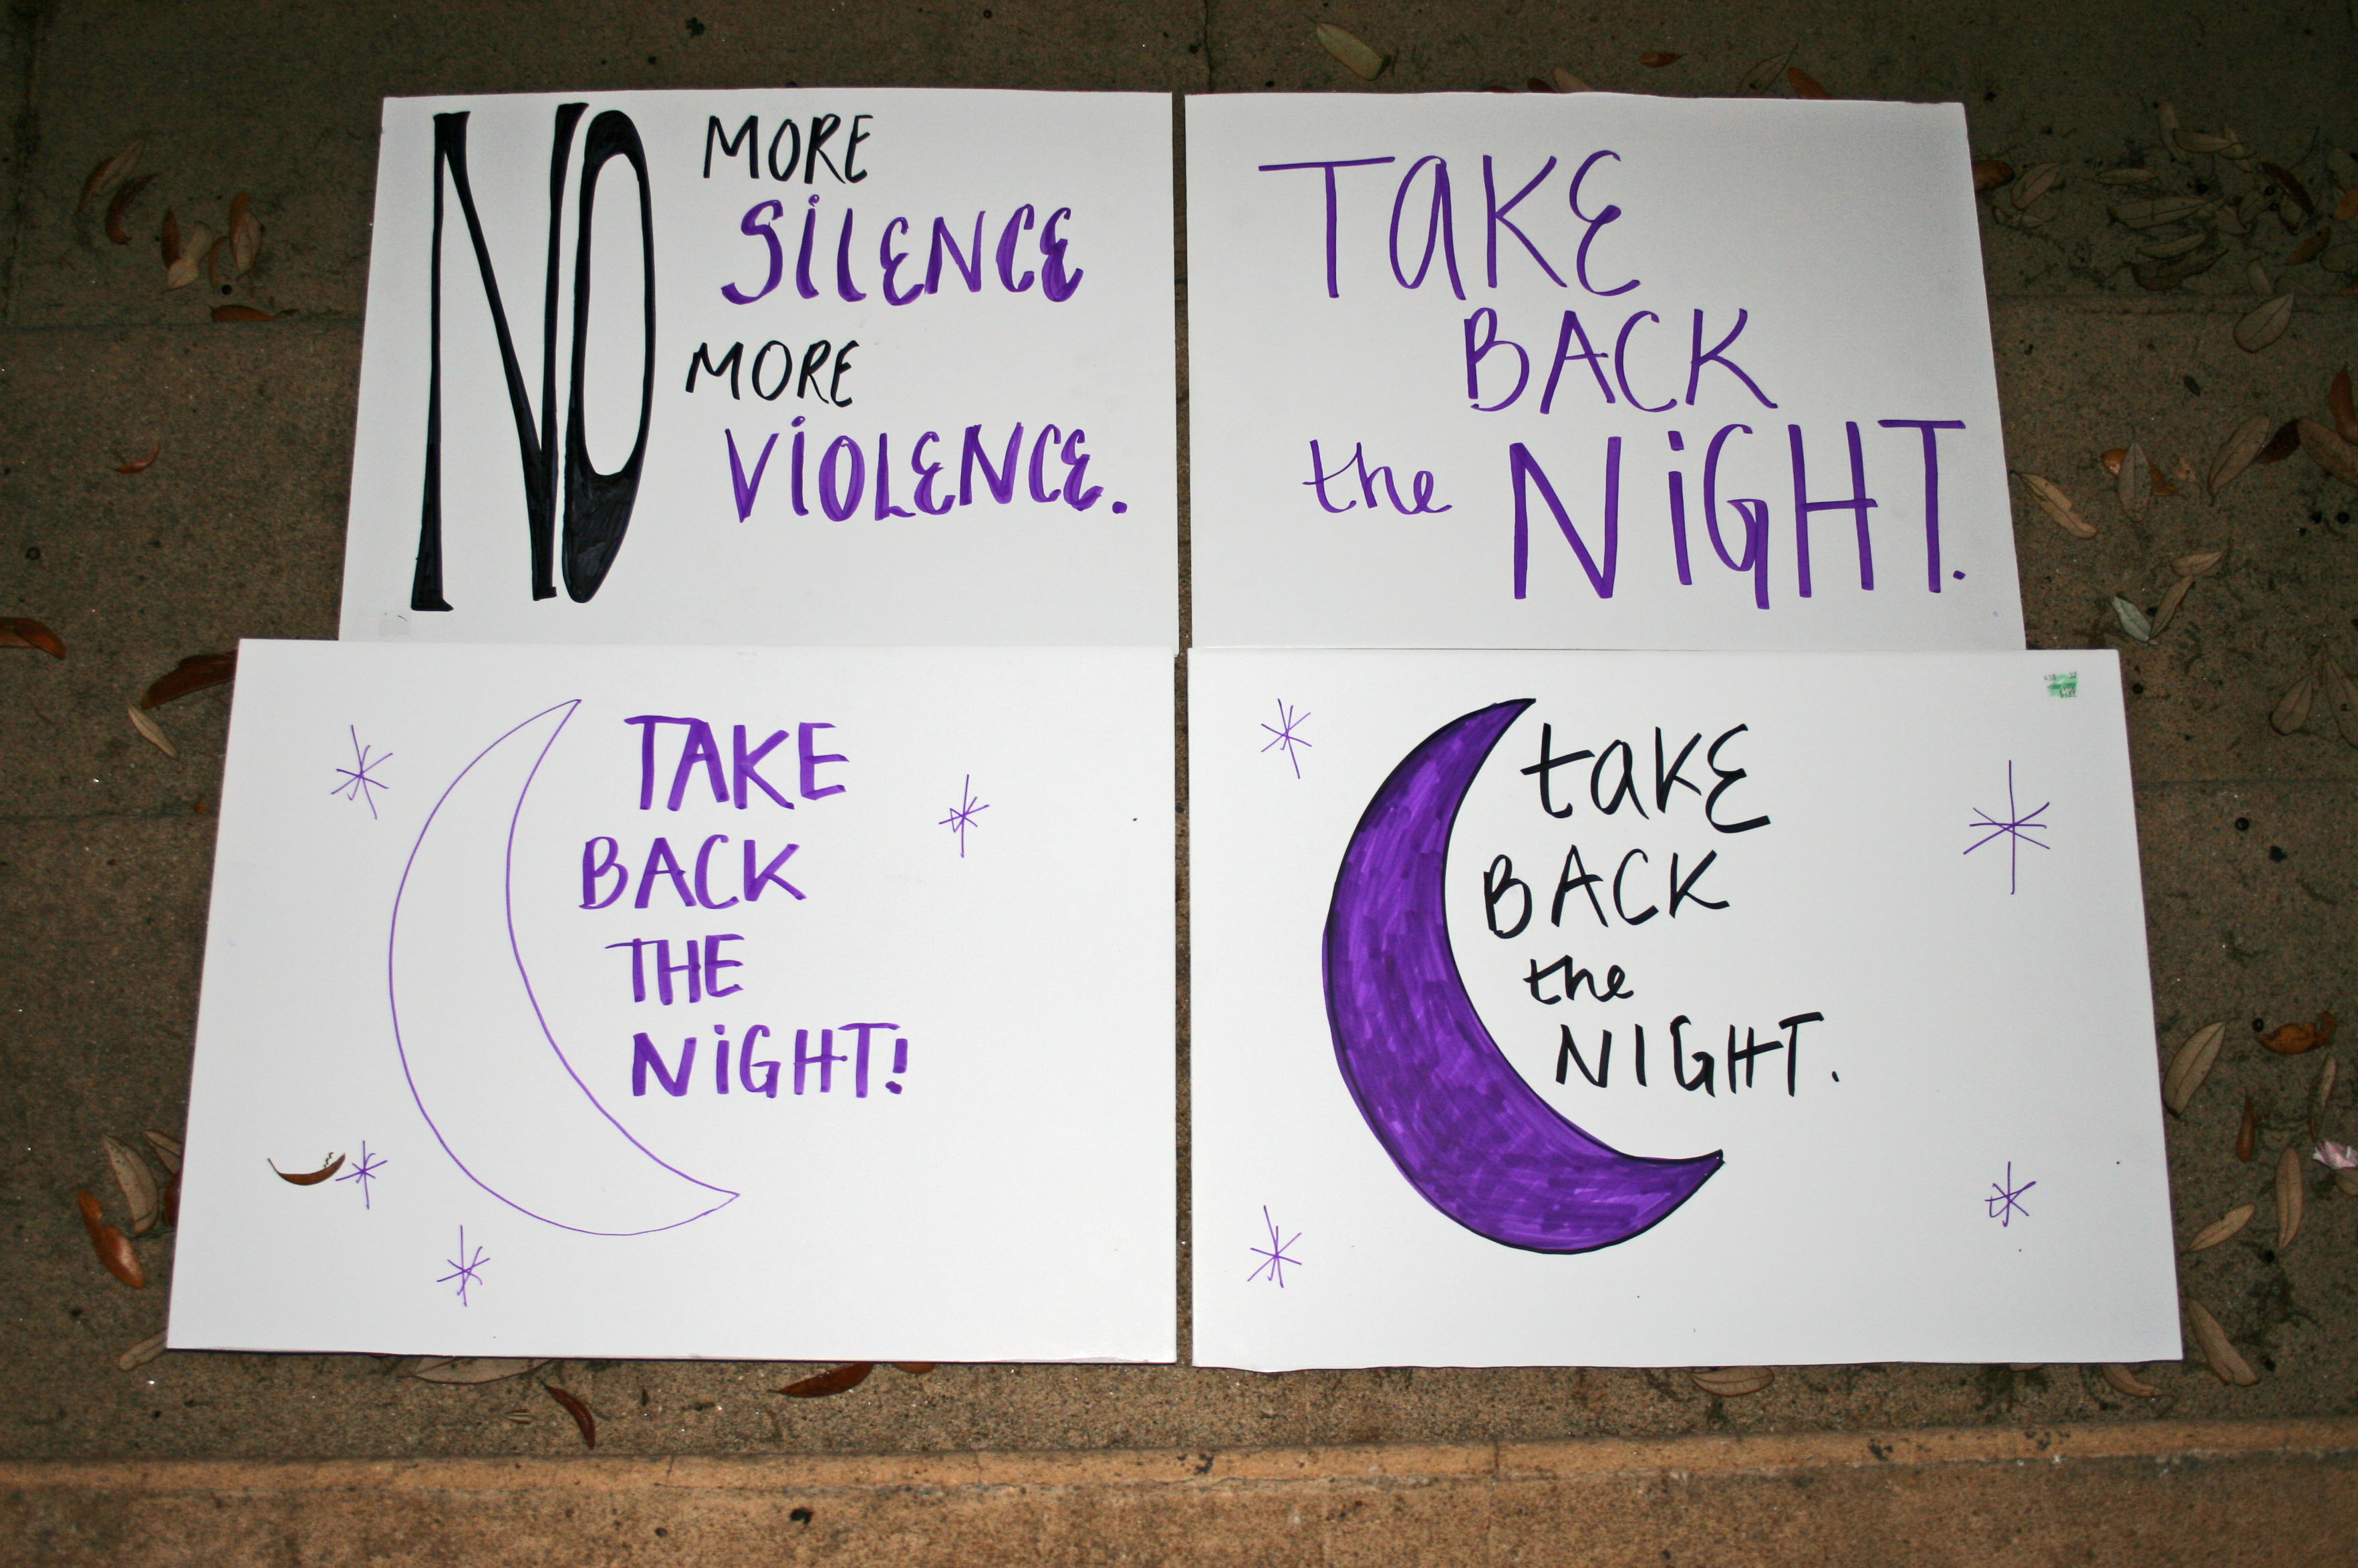 NO MORE
SiLENCE
MORE
ViOLENCE.
TaKE
BACK
the NiGHT.
TAKE
BACK
THE
NiGHT!
taKE
BACK
the
NIGHT.